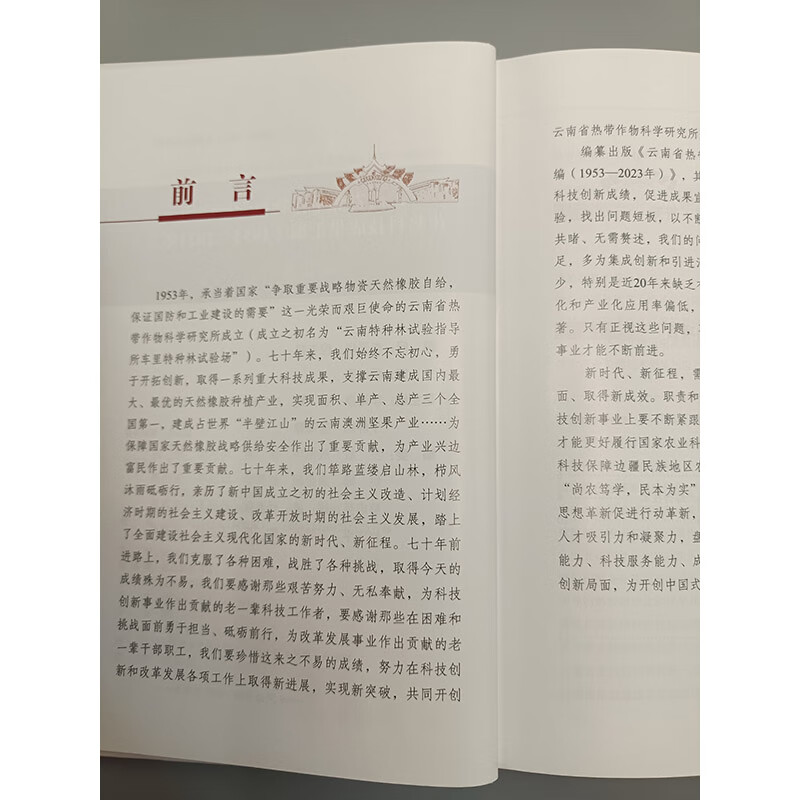 前言
1953年，承当着国家“争取重要战略物资天然橡胶自给，
保证国防和工业建设的需要”这一光荣而艰巨使命的云南省热
带作物科学研究所成立（成立之初名为“云南特种林试验指导
所车里特种林试验场”）。七十年来，我们始终不忘初心，勇
于开拓创新，取得一系列重大科技成果，支撑云南建成国内最
大、最优的天然橡胶种植产业，实现面积、单产、总产三个全
国第一，建成占世界“半壁江山”的云南澳洲坚果产业……为
保障国家天然橡胶战略供给安全作出了重要贡献，为产业兴边
富民作出了重要贡献。七十年来，我们筚路蓝缕启山林，栉风
沐雨砥砺行，亲历了新中国成立之初的社会主义改造、计划经
济时期的社会主义建设、改革开放时期的社会主义发展，踏上
了全面建设社会主义现代化国家的新时代、新征程。七十年前
进路上，我们克服了各种困难，战胜了各种挑战，取得今天的
成绩殊为不易，我们要感谢那些艰苦努力、无私奉献，为科技
创新事业作出贡献的老一辈科技工作者，要感谢那些在困难和
挑战面前勇于担当、砥砺前行，为改革发展事业作出贡献的老
一辈干部职工，我们要珍惜这来之不易的成绩，努力在科技创
新和改革发展各项工作上取得新进展，实现新突破，共同开创
云南省热带作物科学研究所
编纂出版《云南省热
编（1953—2023年）》，其
科技创新成绩，促进成果宣
验，找出问题短板，以不断
共睹、无需赘述，我们的问
足，多为集成创新和引进消
少，特别是近20年来缺乏
化和产业化应用率偏低，
著。只有正视这些问题，
事业才能不断前进。
新时代、新征程，需
面、取得新成效。职责和
技创新事业上要不断紧跟
才能更好履行国家农业科
科技保障边疆民族地区农
“尚农笃学，民本为实”
思想革新促进行动革新，
人才吸引力和凝聚力，盘
能力、科技服务能力、成
创新局面，为开创中国式